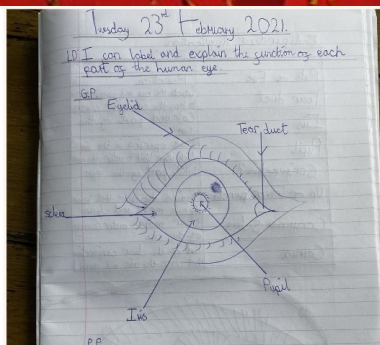 Tuesday 23rd February 2021.
LO I can label and explain the function of each
part of the human eye.
G.P.
Eyelid
Tear duct
sclera
Pupil
Iris
P.P